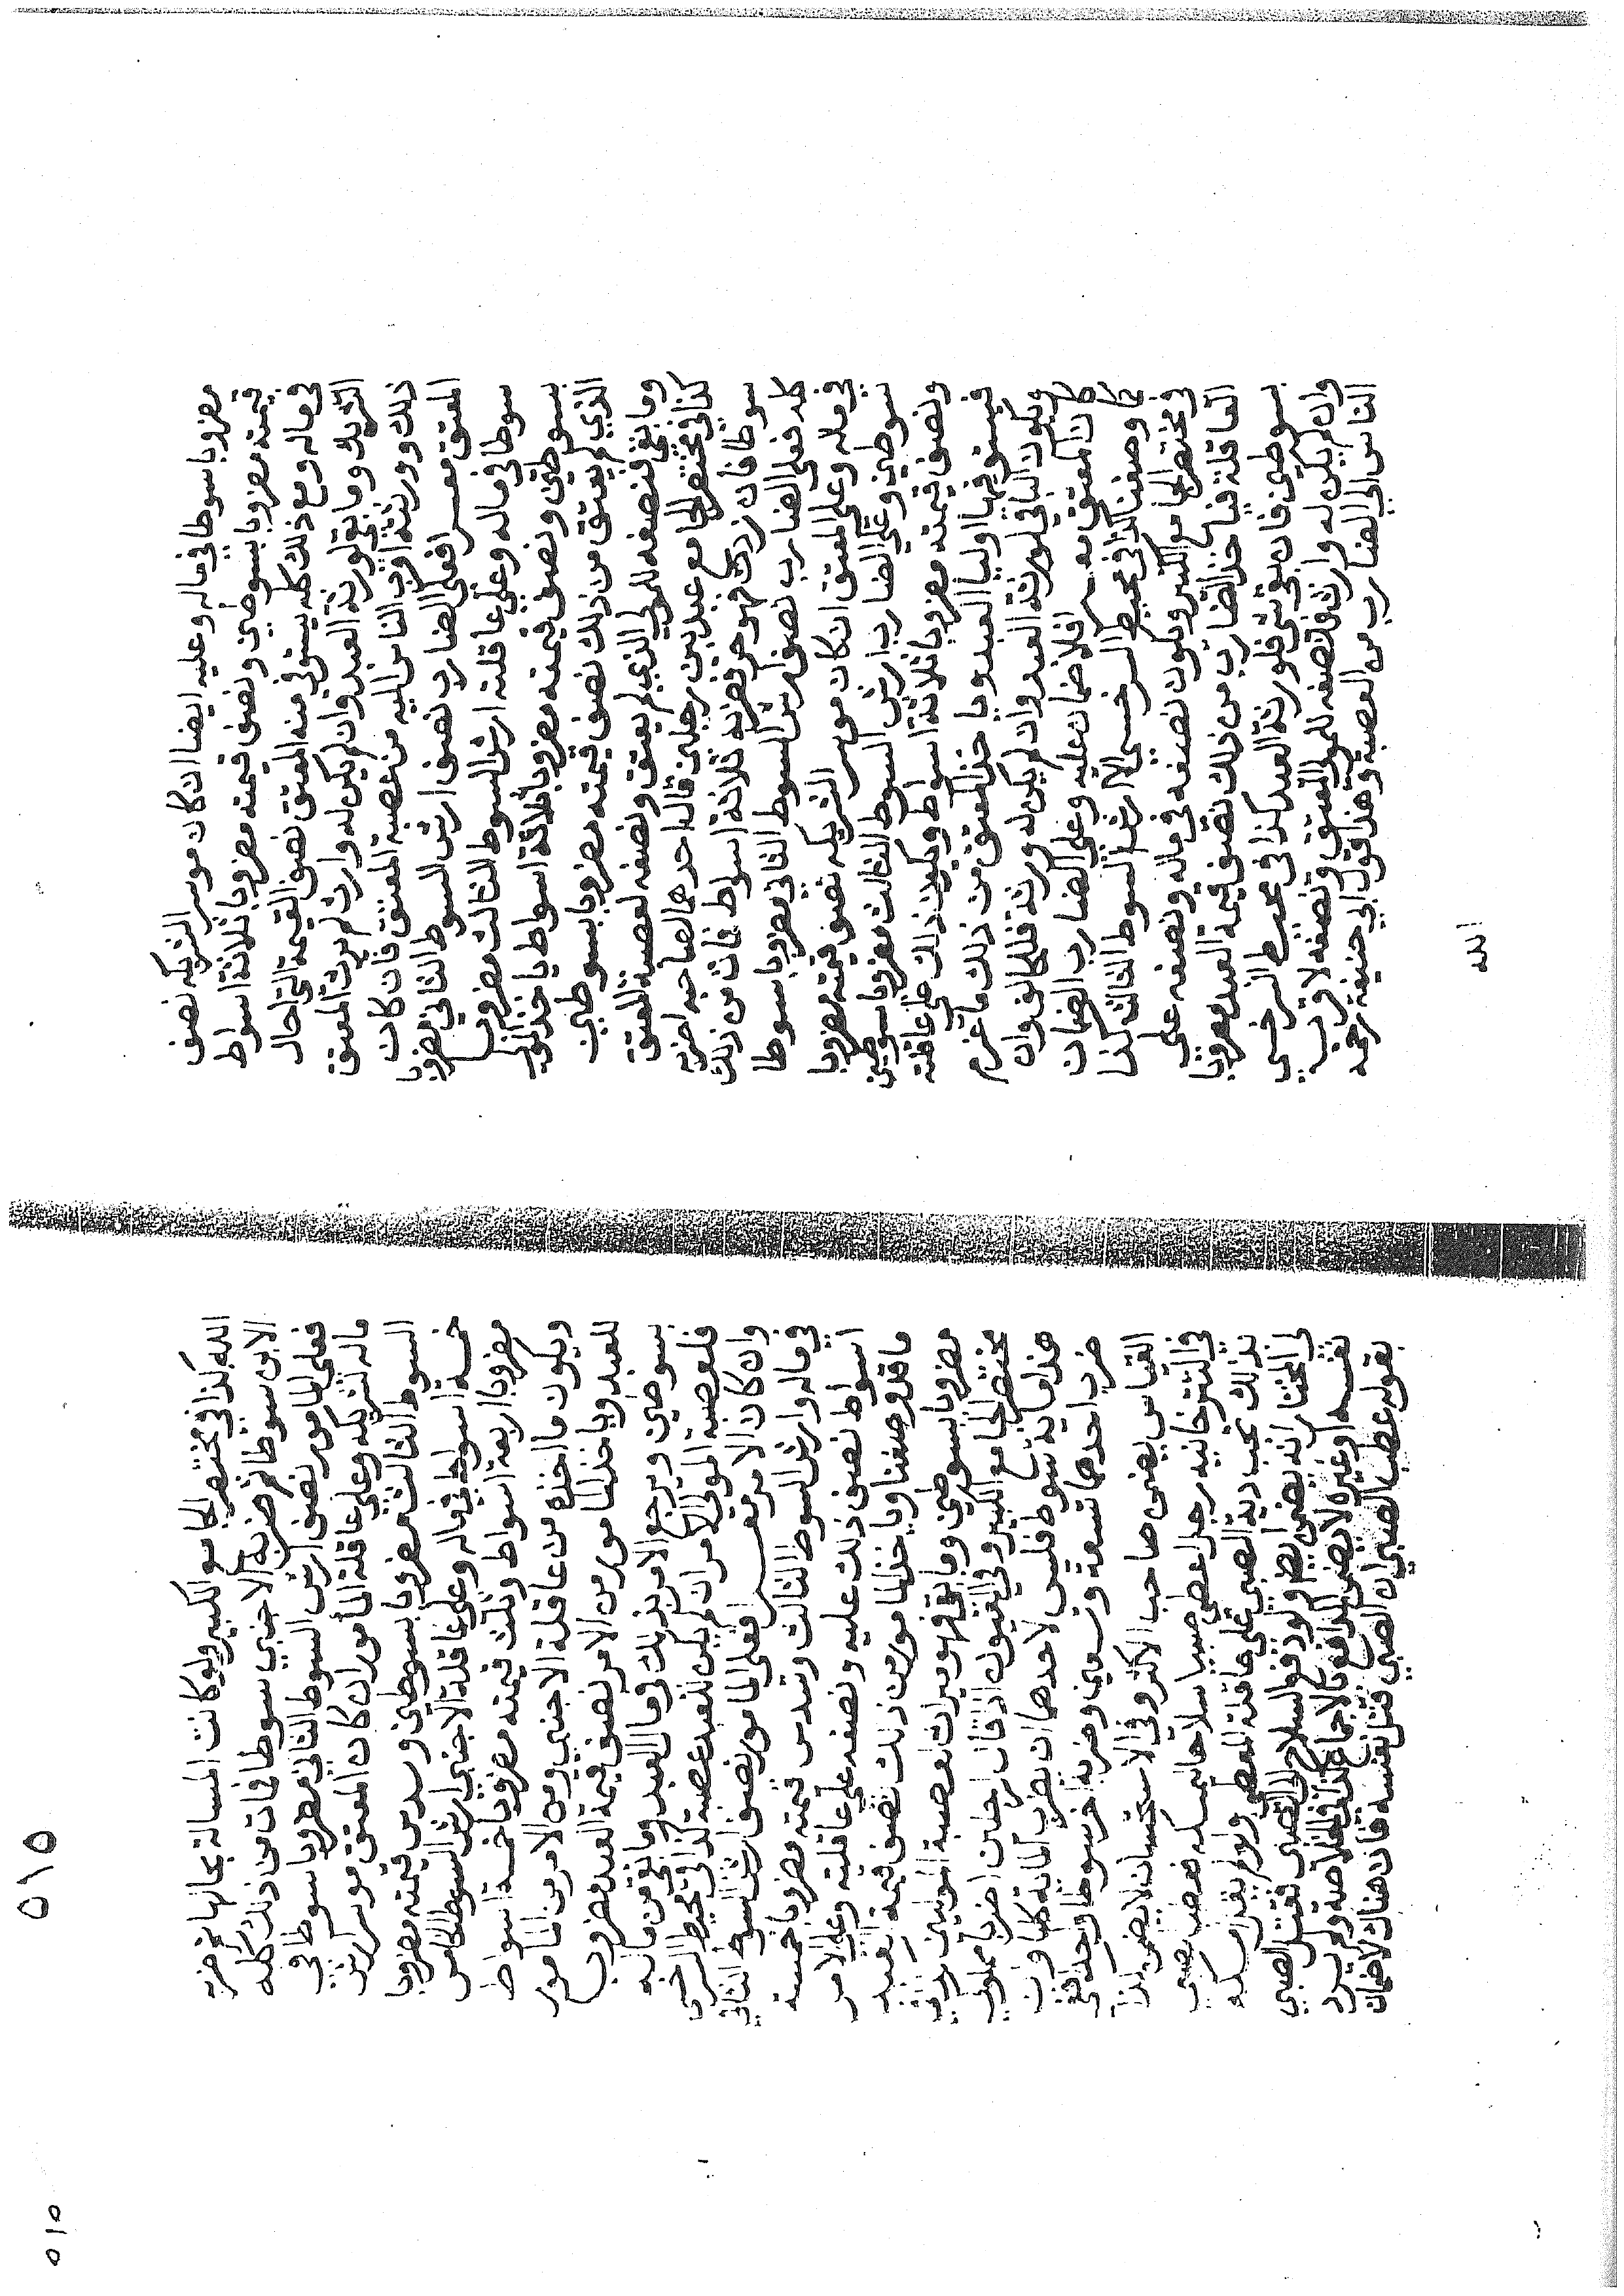 مضروبا سوطا في ماله وعليه ايضا ان كان موسر الشريكه نصف
قيمته مضروبا بسوطين ونصف قيمته مضروبا بثلاثة اسواط
في ماله ومع ذلك كله يستوفي منه المعتق نصف القيمة التي احال
الشريك وما بقي لورثة العبد وان لم يكن له وارث لم يرث المعتق
ذلك وورثته اقرب الناس اليه من عصبة المعتق فان كان
المعتق معسرا فعلى الضارب نصف ارش السوط الثاني مضروبا
سوطا في ماله وعلى عاقلته ارش السوط الثالث مضروبا
بسوطين ونصف قيمته مضروبا بثلاثة اسواط ياخذ المولى
الذي لم يعتق من ذلك نصف قيمته مضروبا بسوطين
وما بقي فنصفه للمولى الذي لم يعتق ونصفه لعصبة المعتق
كذا في مختصر الجامع عبد بين رجلين قال احدهما لصاحبه اضربه
سوطا فان زدت فهو حر فضربه ثلاثة اسواط فمات من ذلك
كله فعلى الضارب نصف ارش السوط الثاني مضروبا سوطا
في ماله وعلى المعتق ان كان موسر الشريكه نصف قيمته مضروبا
سوطين وعلى الضارب ارش السوط الثالث مضروبا سوطين
ونصف قيمته مضروبا ثلاثة اسواط ويكون ذلك على عاقلته
فيستوفيها اوليا العبد وياخذ المعتق من ذلك ما غرم
ويكون الباقي لورثة العبد وان لم يكن له ورثة فللحالف وان
كان المعتق معسرا فلا ضمان عليه وعلى الضارب الضمان
كما وصفنا كذا في محيط السرخسي الا ارش السوط الثالث كذا
في مختصر الجامع الكبير ويكون نصفه في ماله ونصفه على
العاقلة فياخذ الضارب من ذلك نصف قيمة العبد مضروبا
بسوطين فان بقي شي فلورثة العبد كذا في محيط السرخسي
وان لم يكن له وارث فنصفه للمولى المعتق ونصفه لاقرب
الناس الى الضارب من العصبة وهذا قول ابي حنيفة رحمه
الله
٥١٥
الله كذا في مختصر الجامع الكبير ولو كانت المسالة بحالها ثم ضربه
الابن سوطا ثم ضربه الاجنبي سوطا فمات من ذلك كله
فعلى المامور نصف ارش السوط الثاني مضروبا سوطا في
ماله لشريكه وعلى عاقلة المأمور ان كان المعتق موسرا ارش
السوط الثالث مضروبا بسوطين وسدس قيمته مضروبا
خمسة اسواط في ماله وعلى عاقلة الاجنبي ارش السوط الخامس
مضروبا اربعة اسواط وثلث قيمته مضروبا خمسة اسواط
ويكون ما اخذ من عاقلة الاجنبي ومن الامر من المامور
للعبد وياخذ المامور من الامر نصف قيمة العبد مضروبا
بسوطين ويرجع الامر بذلك في مال العبد وما بقي من ماله
فلعصبة المولى الآمر ان لم يكن للعبد عصبة كذا في محيط السرخسي
وان كان الامر معسرا فعلى المامور نصف ارش السوط الثاني
في ماله وارش السوط الثالث وسدس قيمته مضروبا خمسة
اسواط نصف ذلك عليه ونصفه على عاقلته وعلى الامر
ما قد وصفنا وياخذ المامور من ذلك نصف قيمة العبد
مضروبا بسوطين وما بقي فهو ميراث لعصبة الموليين
مختصر الجامع الكبير وفي العيون اذا قال رجلين اضربا مملوكي
هذا ماية سوط فليس لاحدهما ان يضرب الماية كلها وان
ضرب احدهما تسعة وتسعين وضربه اخر سوطا واحدا ففي
القياس يضمن صاحب الاكثر وفي الاستحسان لا يضمن
في التترخانيه رجل اعطى صبيا سلاحا ليمسكه فعطب الصبي
بذلك تجب دية الصبي على عاقلة المعطي ولو لم يقل امسكه
في المختار انه يضمن ايضا ولو دفع السلاح الى الصبي فقتل الصبي
نفسه او غيره لا يضمن الدافع بالاجماع كذا في الخلاصة ولم يرد
بقوله عطب الصبي ان الصبي قتل نفسه فان هناك لا ضمان
٥١٥